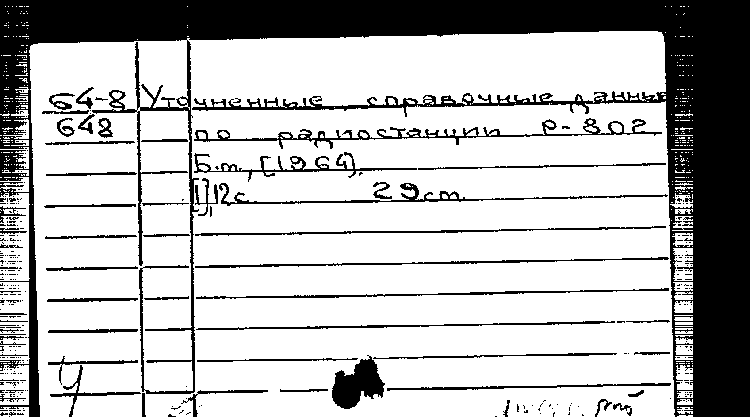 64-8 Уточненные справочные данные
648 по радиостанции Р-802
Б.m., [1964].
[1],12с. 29cm.
У